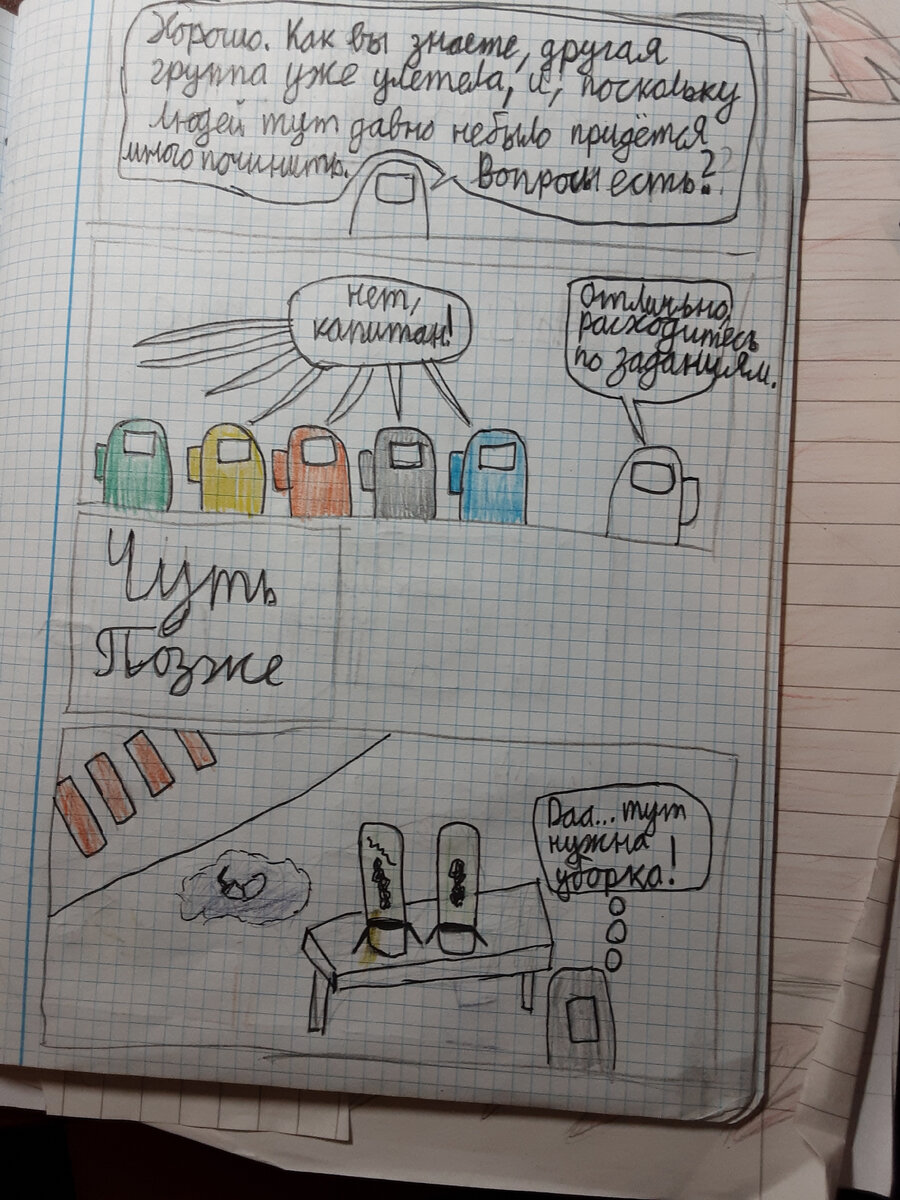 Хорошо. Как вы знаете, другая
группа уже улетела, и, поскольку
людей тут давно небыло придётся
много починить. Вопросы есть?
нет,
капитан!
Отлично,
расходитесь
по заданиям.
Чуть
Позже
Даа... тут
нужна
уборка!